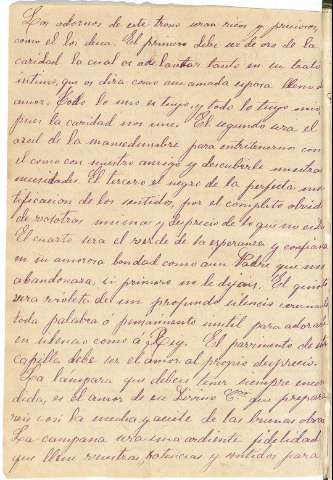 Los adornos de este trono seran ricos y preciosos,
como el los desea. El primero debe ser de oro de la
caridad la cual os adelantar tanto en su trato
intimo, que os dira como a su amada esposa lleno de
amor. Todo lo mio es tuyo, y todo lo tuyo mio
pues la caridad nos une. El segundo sera el
azul de la mansedumbre para entretenernos con
el como con nuestro amigo y descubrirle nuestras
necesidades. El tercero el negro de la perfecta mor
tificacion de los sentidos, por el completo olvido
de vosotras mismas y desprecio de lo que no es Dios
El cuarto sera el verde de la esperanza y confianza
en su amorosa bondad como a un Padre que nos
abandonara, si primero no le dejais. El quinto
sera violeta del un profundo silencio
toda palabra ó pensamiento inutil para adorarle
en silencio como a Rey. El pavimento de esta
capilla debe ser el amor al propio desprecio.
La lampara que debeis tener siempre encen
dida, es el amor de su Divino que prepara
reis con la mecha y aceite de las buenas obras
La campana sera una ardiente fidelidad
que llame vuestras potencias y sentidos para